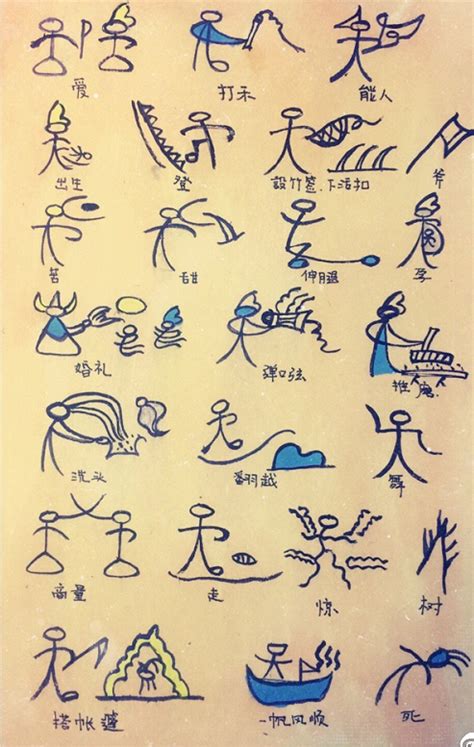 爱 打禾 能人
出生 登 設竹签.下活扣 斧
苦 甜 伸腿 孕
婚礼 弹口弦 推
洗头 翻越 舞
商量 走 惊 树
搭帐篷 一帆风顺 死